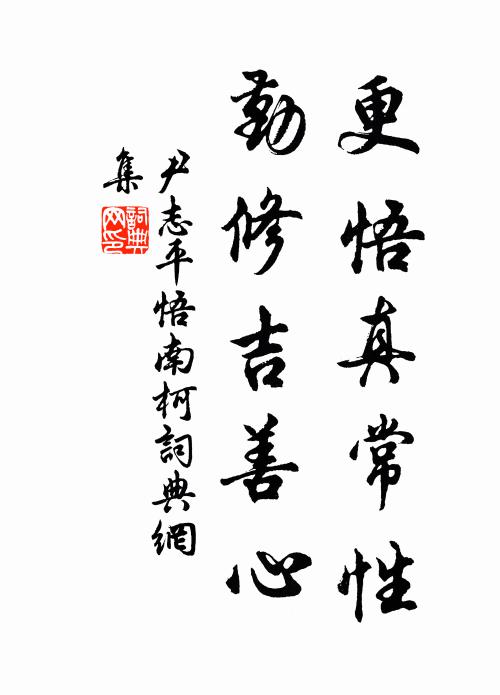 更悟真常性
勤修吉善心
尹志平悟南柯詞典網
集
詞典
网印